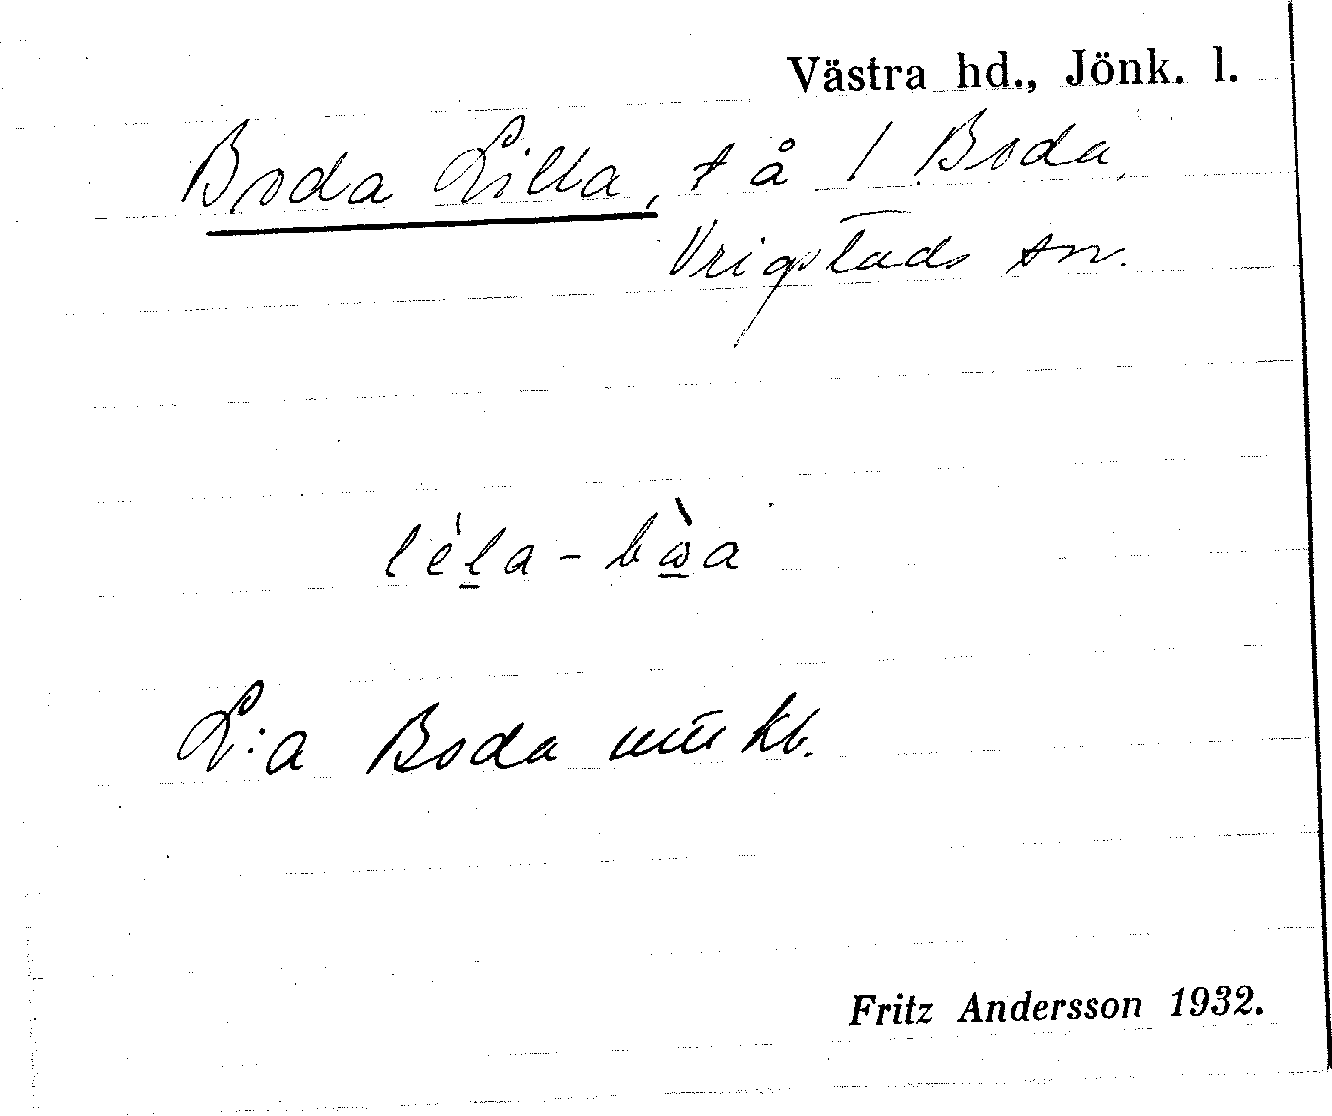 Västra hd., Jönk. l.
Boda Lilla, t å 1 Boda,
Vrigstads sn.
lèla - bòa
L:a Boda kb.
Fritz Andersson 1932.